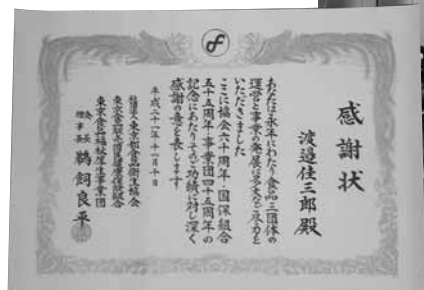 感謝状
渡邉佳三郎殿
あなたは永年にわたり食品三団体の
運営と事業の発展に多大なご尽力を
いただきました
ここに協会六十周年・国保組合
五十五周年・事業団四十五周年の
記念にあたりそのご功績に対し深く
感謝の意を表します
平成二十一年十一月十日
社団法人東京都食品衛生協会
東京食品販売国民健康保険組合
東京食品福祉厚生事業団
会長
理事長
鵜飼良平